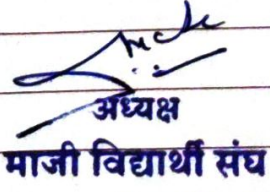 अध्यक्ष
माजी विद्यार्थी संघ